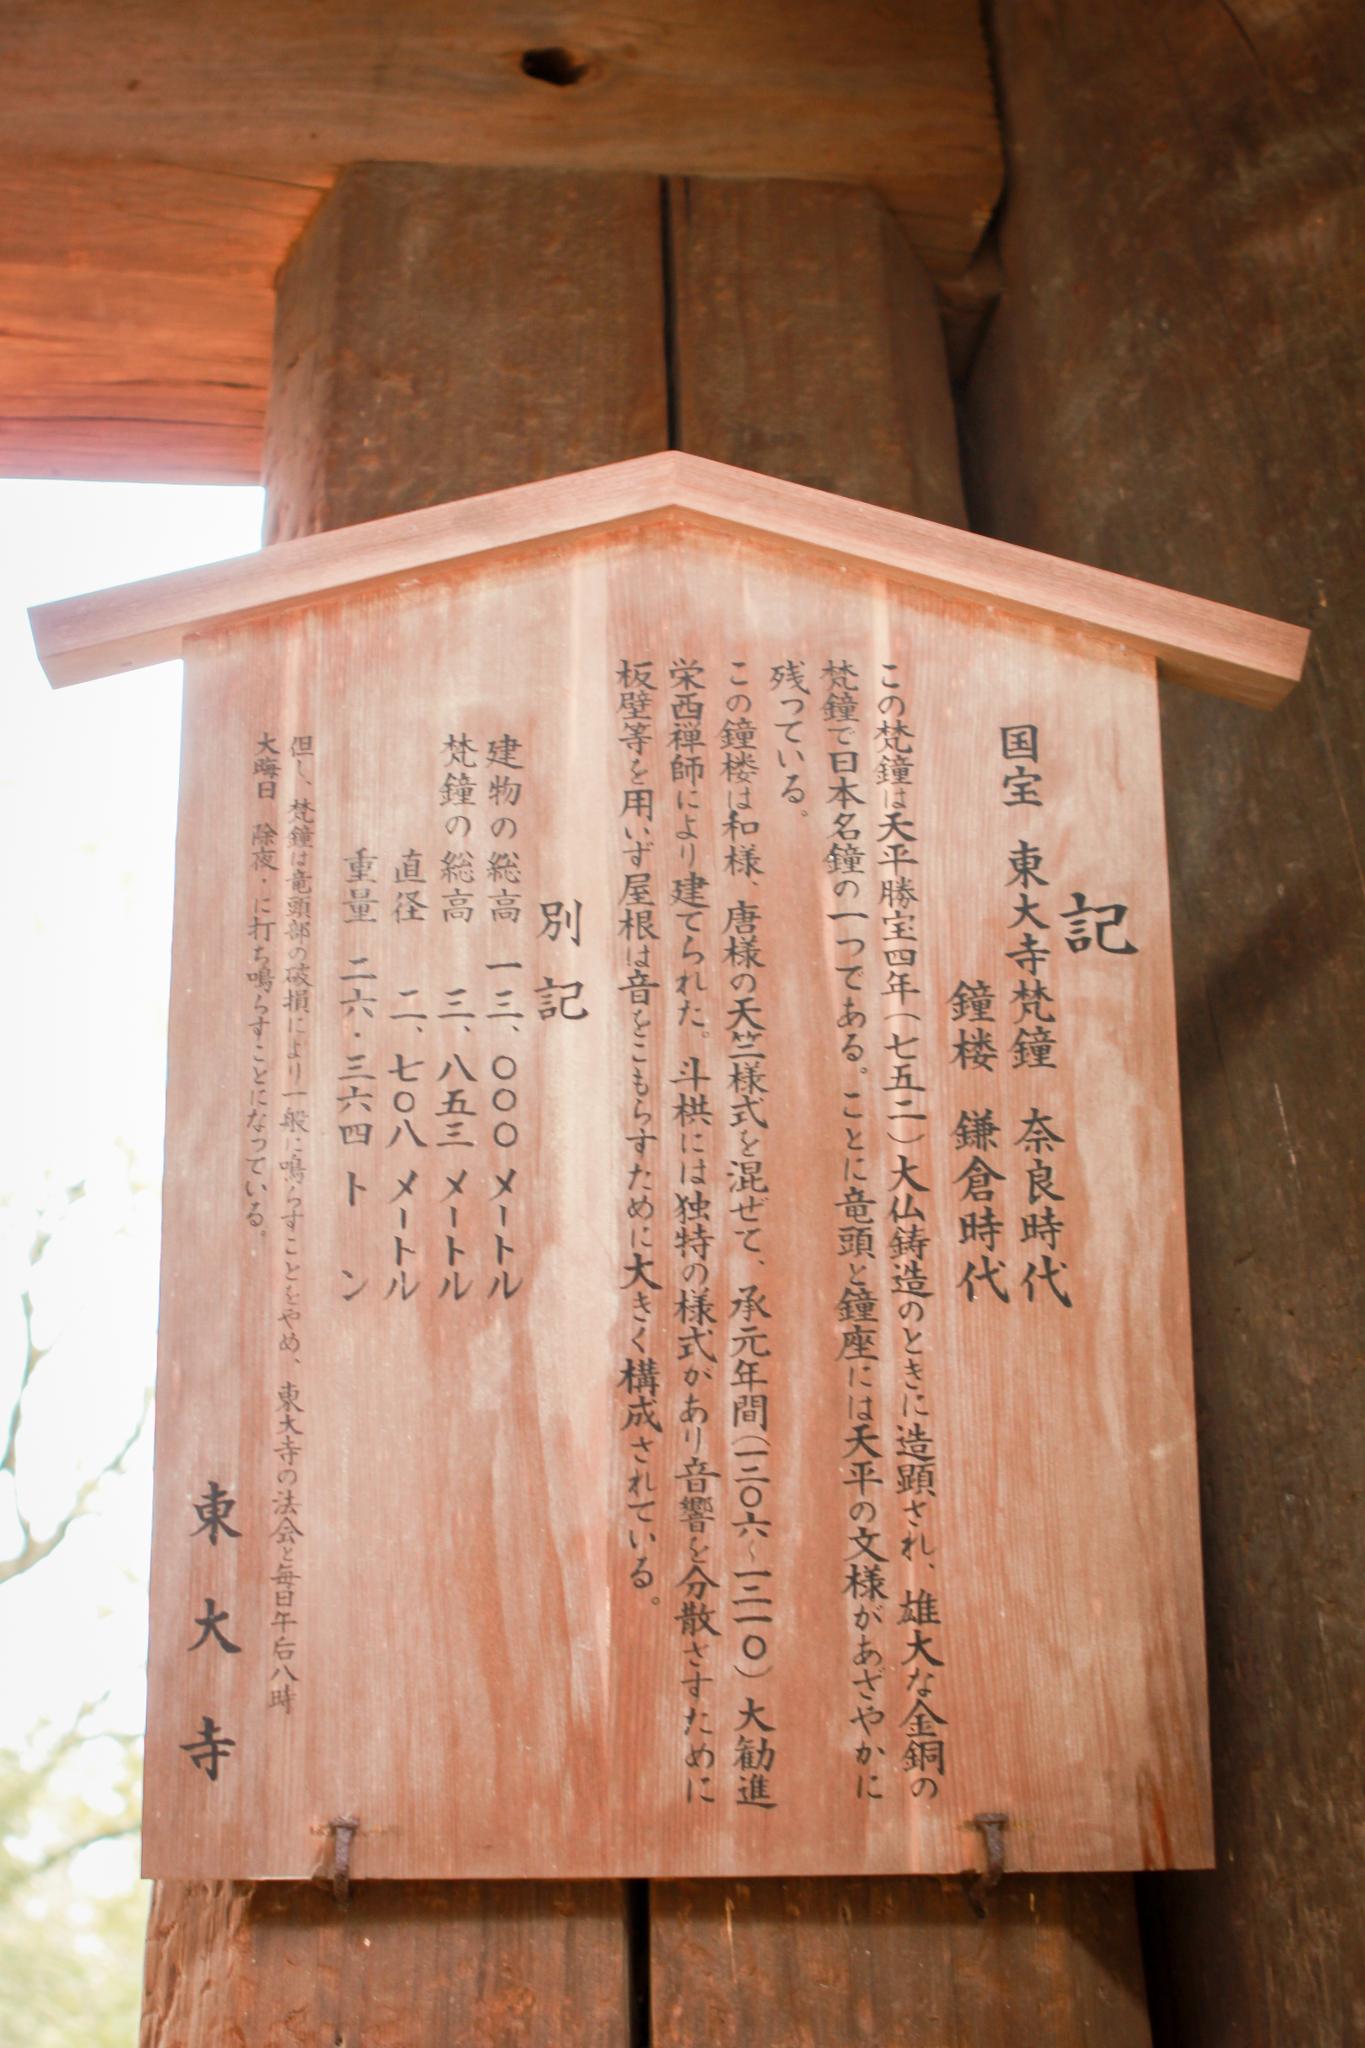 記
国宝　東大寺梵鐘　奈良時代
鐘楼　鎌倉時代
この梵鐘は天平勝宝四年（七五二）大仏鋳造のときに造顕され、雄大な金銅の
梵鐘で日本名鐘の一つである。ことに竜頭と鐘座には天平の文様があざやかに
残っている。
この鐘楼は和様、唐様の天竺様式を混ぜて、承元年間（一二〇六～一二一〇）大勧進
栄西禅師により建てられた。斗栱には独特の様式があり音響を分散さすために
板壁等を用いず屋根は音をこもらすために大きく構成されている。
別記
建物の総高　一三、〇〇〇メートル
梵鐘の総高　三、八五三メートル
直径　二、七〇八メートル
重量　二六・三六四トン
但し、梵鐘は竜頭部の破損により一般に鳴らすことをやめ、東大寺の法会と毎日午后八時
大晦日　除夜・に打ち鳴らすことになっている。
東大寺